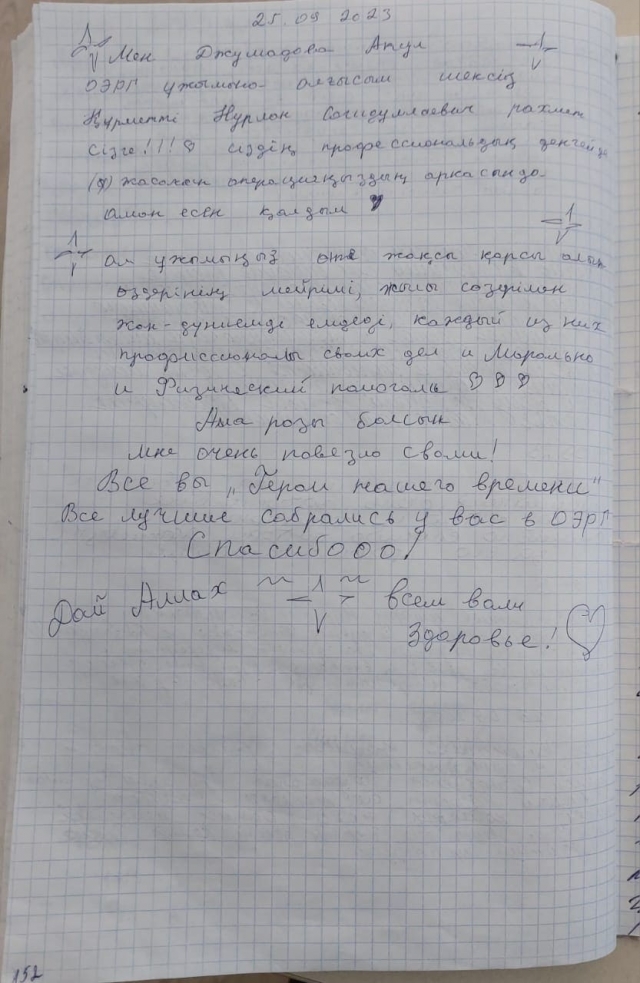 25.09 2023
Мен Джумадова Апул
ОЭРГ ужымына алғысым шексіз
Құрметті Нурлан Сагидуллаевич рахмет
сізге!!! сіздің профессиональдық денгейде
жасаған операцияңыздың арқасында
аман есен қалдым
ал ужымыңыз өте жақсы қарсы алып
өздерінің мейрімі, жылы сөзерімен
жан-дүниемді емдеді, каждый из них
профиссионалы своих дел и Морально
и Физический помогали
Аша розы болсын
мне очень повезло с вами!
Все вы „Герои нашего времени"
Все лучшие собрались у вас в ОЭРГ
Спасибооо!
Дай Аллах всем вам
Здоровье!
152